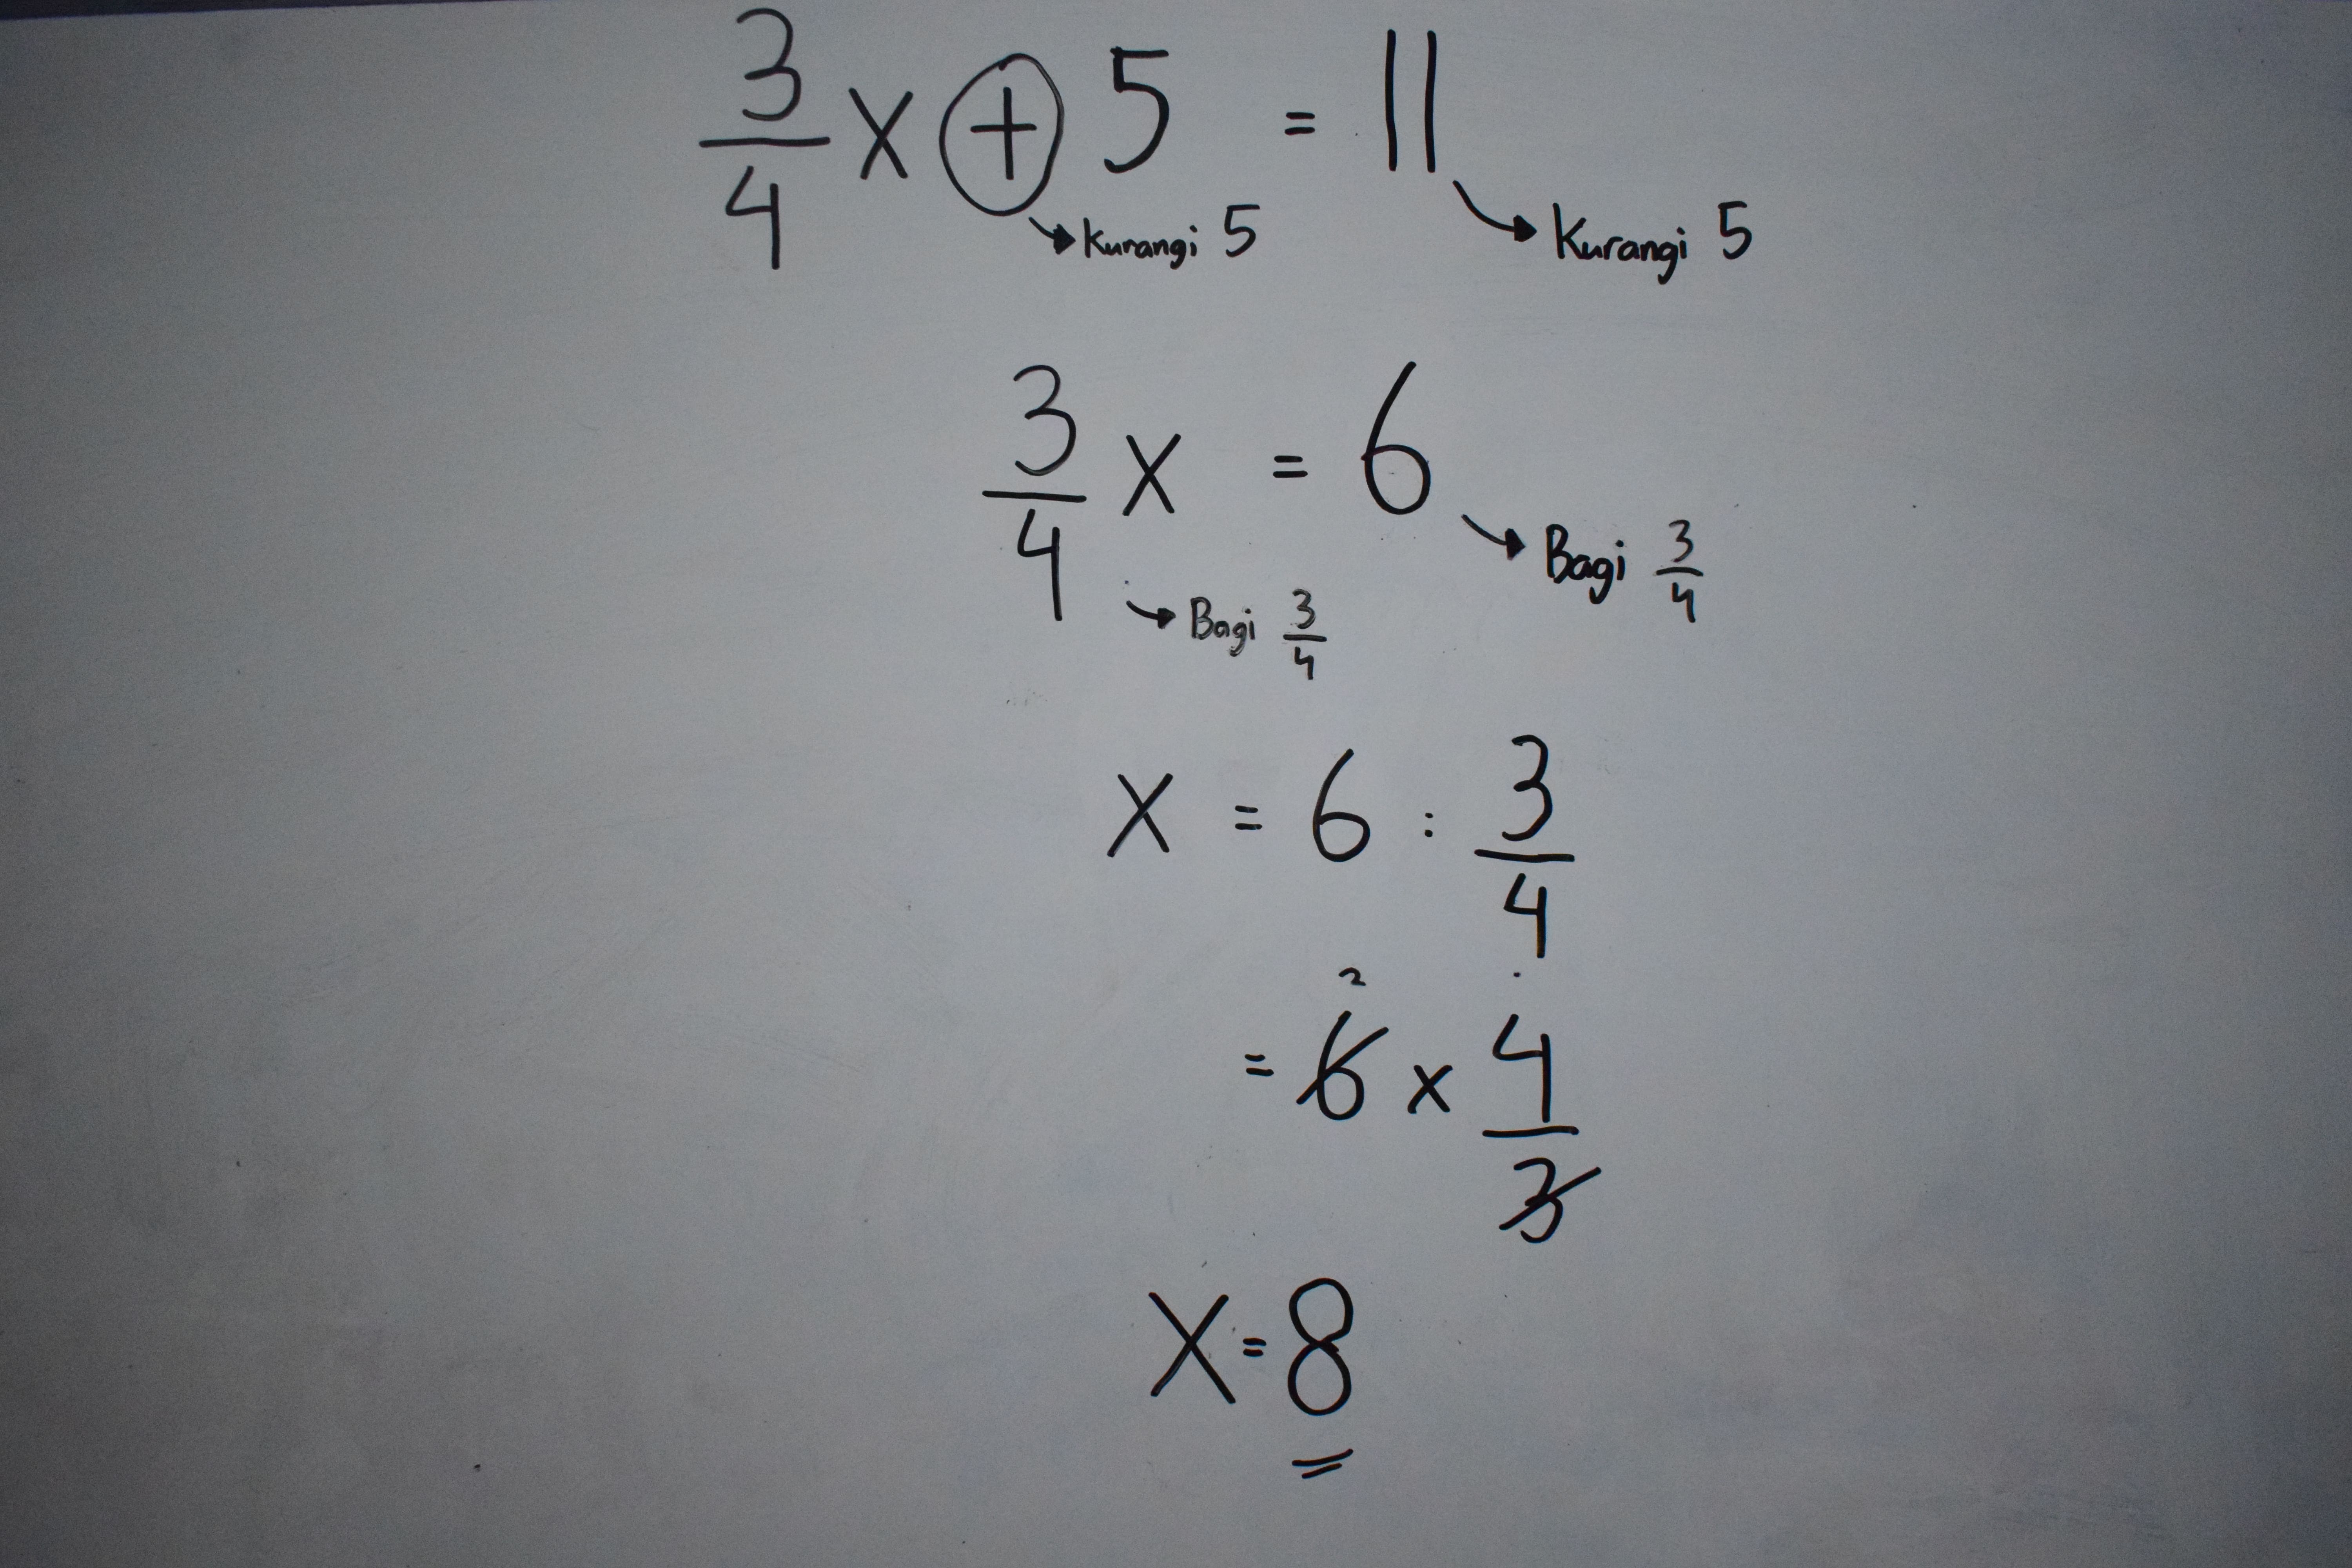 3/4 x + 5 = 11
Kurangi 5 Kurangi 5
3/4 x = 6
Bagi 3/4 Bagi 3/4
x = 6 : 3/4
2
= 6 x 4/3
x = 8